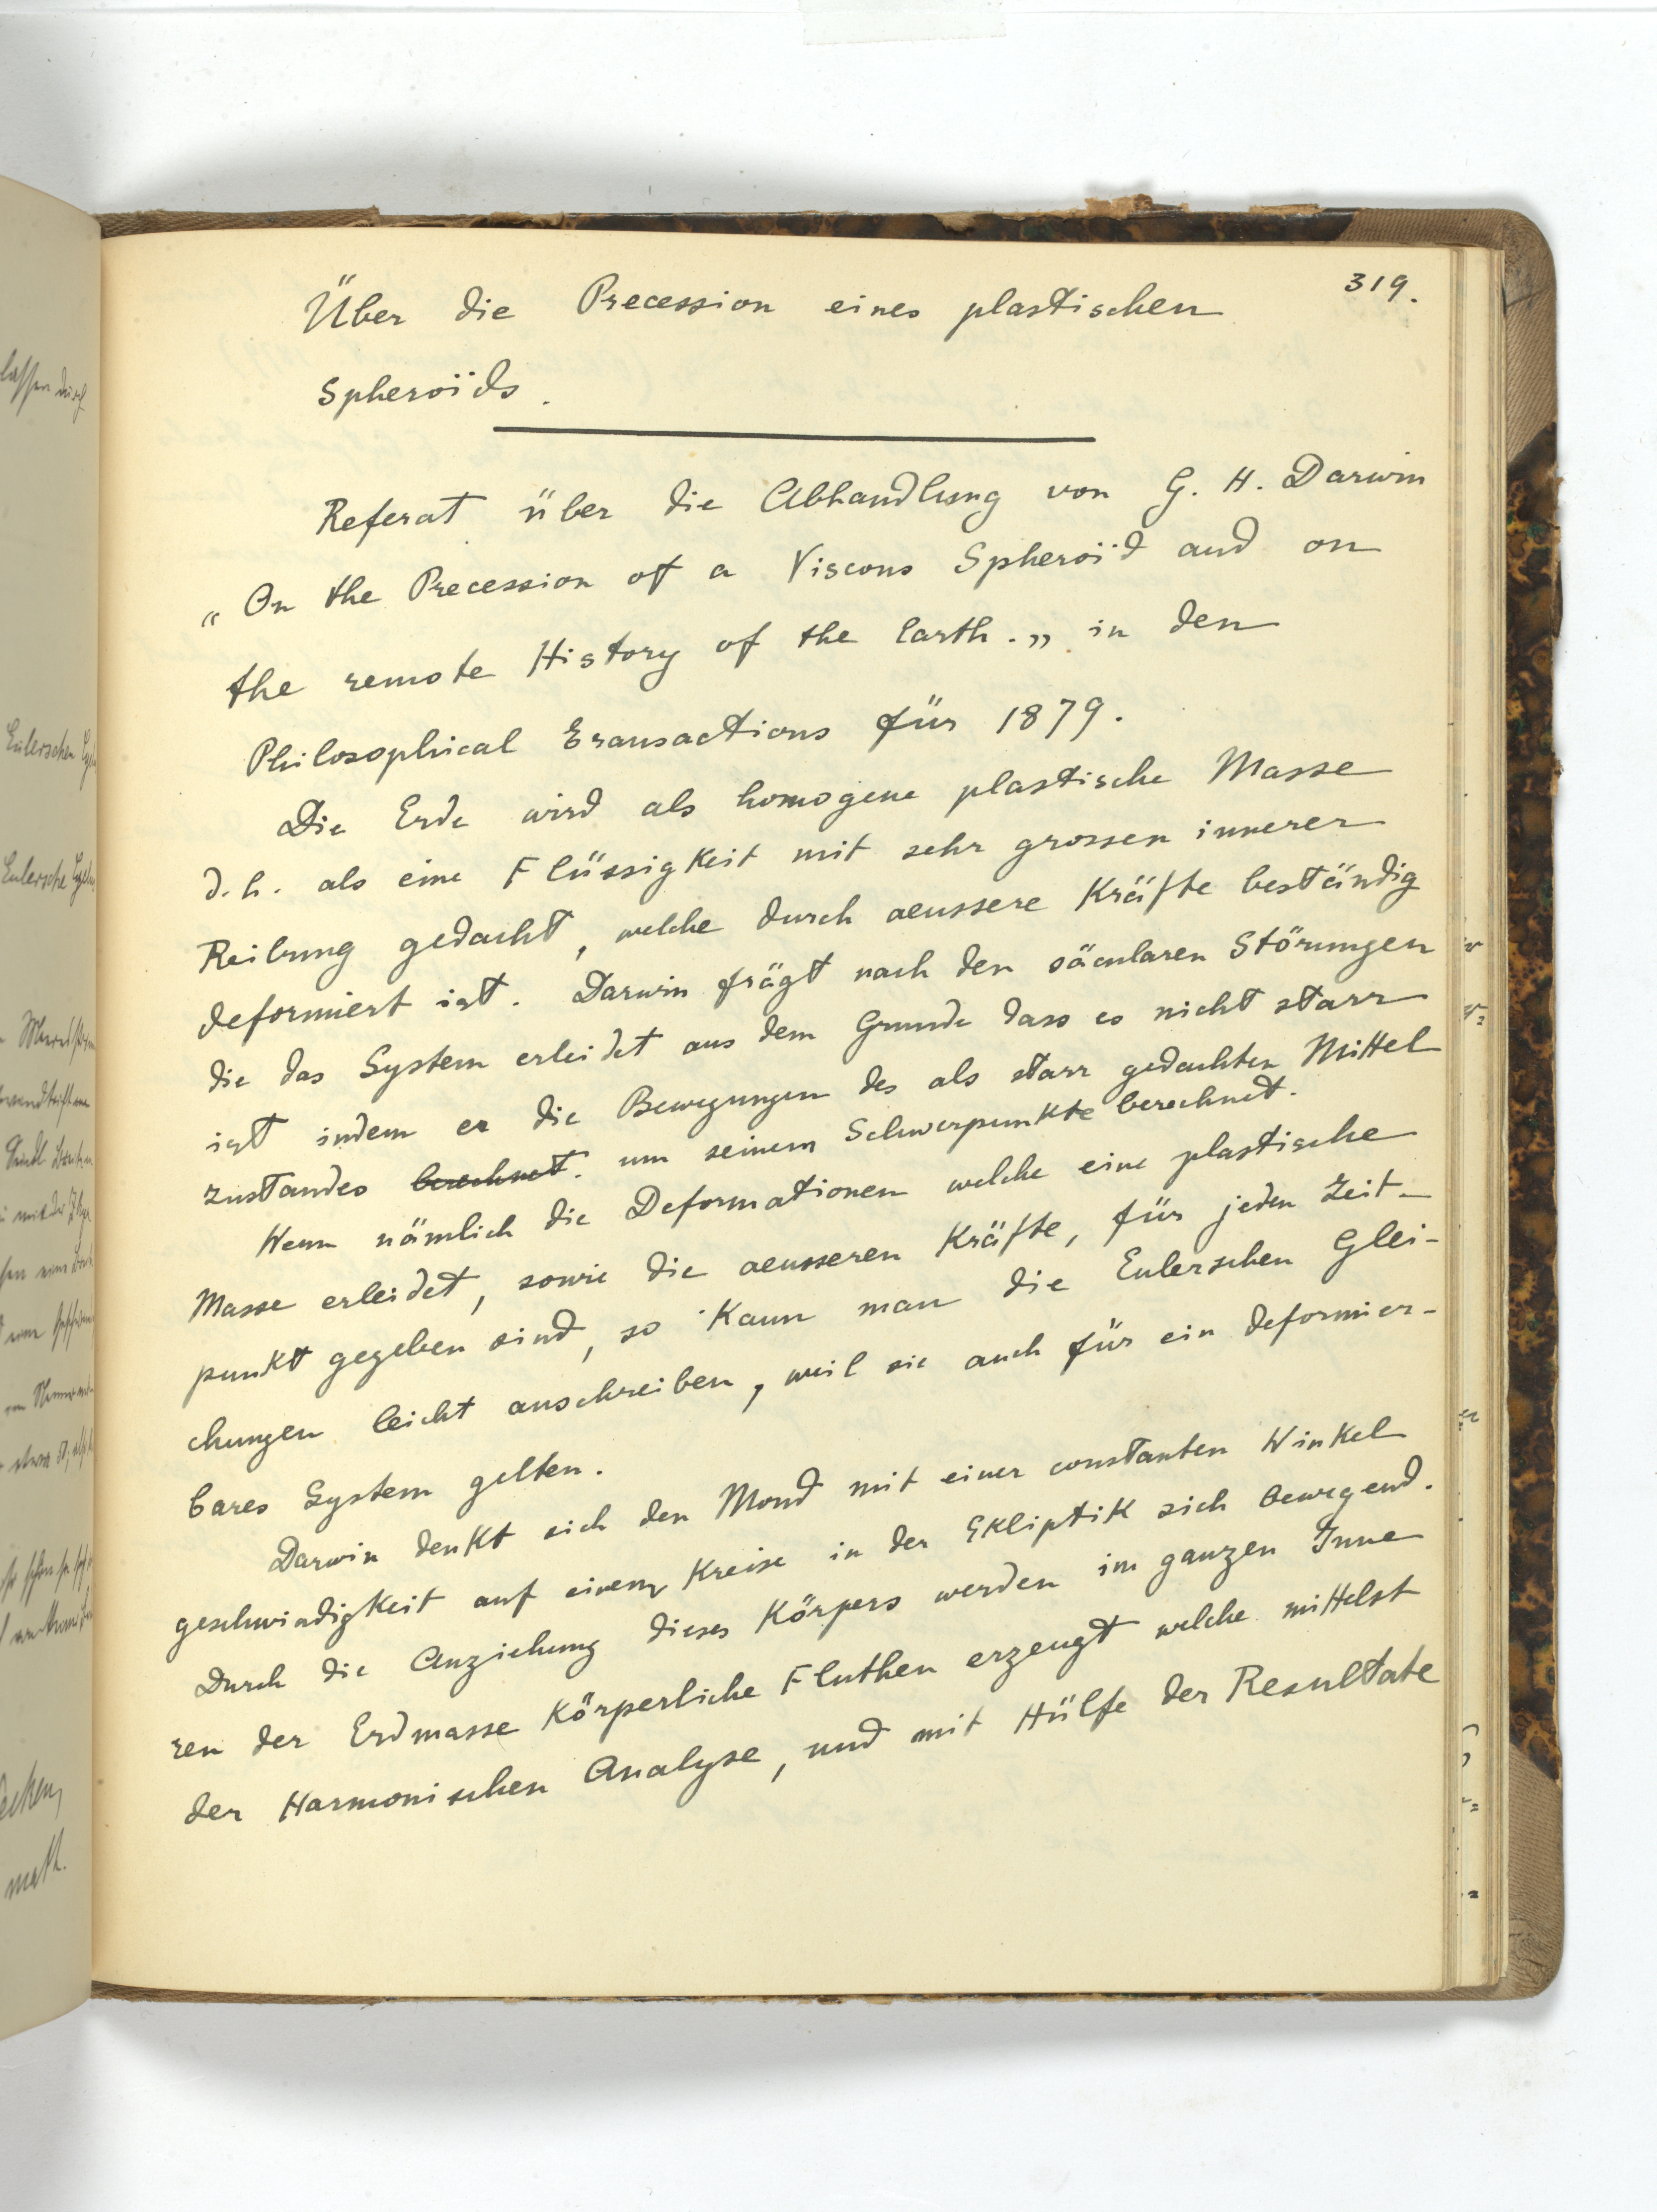 319.
Über die Precession eines plastischen
Spheroïds.
Referat über die Abhandlung von G. H. Darwin
„On the Precession of a Viscous Spheroïd and on
the remote History of the Earth.„ in den
Philosophical Transactions für 1879.
Die Erde wird als homogene plastische Masse
d.h. als eine Flüssigkeit mit sehr grossen innerer
Reibung gedacht, welche durch aeussere Kräfte beständig
deformiert ist. Darwin frägt nach den säcularen Störungen
die das System erleidet aus dem Grunde dass es nicht starr
ist indem er die Bewegungen des als starr gedachten Mittel
zustandes berechnet. um seinem Schwerpunkte berechnet.
Wenn nämlich die Deformationen welche eine plastische
Masse erleidet, sowie die aeusseren Kräfte, für jeden Zeit-
punkt gegeben sind, so kann man die Eulerschen Glei-
chungen leicht anschreiben, weil sie auch für ein deformier-
bares System gelten.
Darwin denkt sich den Mond mit einer constanten Winkel
geschwindigkeit auf einem Kreise in der Ekliptik sich bewegend.
Durch die Anziehung dieses Körpers werden im ganzen Inne
ren der Erdmasse körperliche Fluthen erzeugt welche mittelst
der Harmonischen Analyse, und mit Hülfe der Resultate
lassen durch
Eulerschen
Eulersche
math.